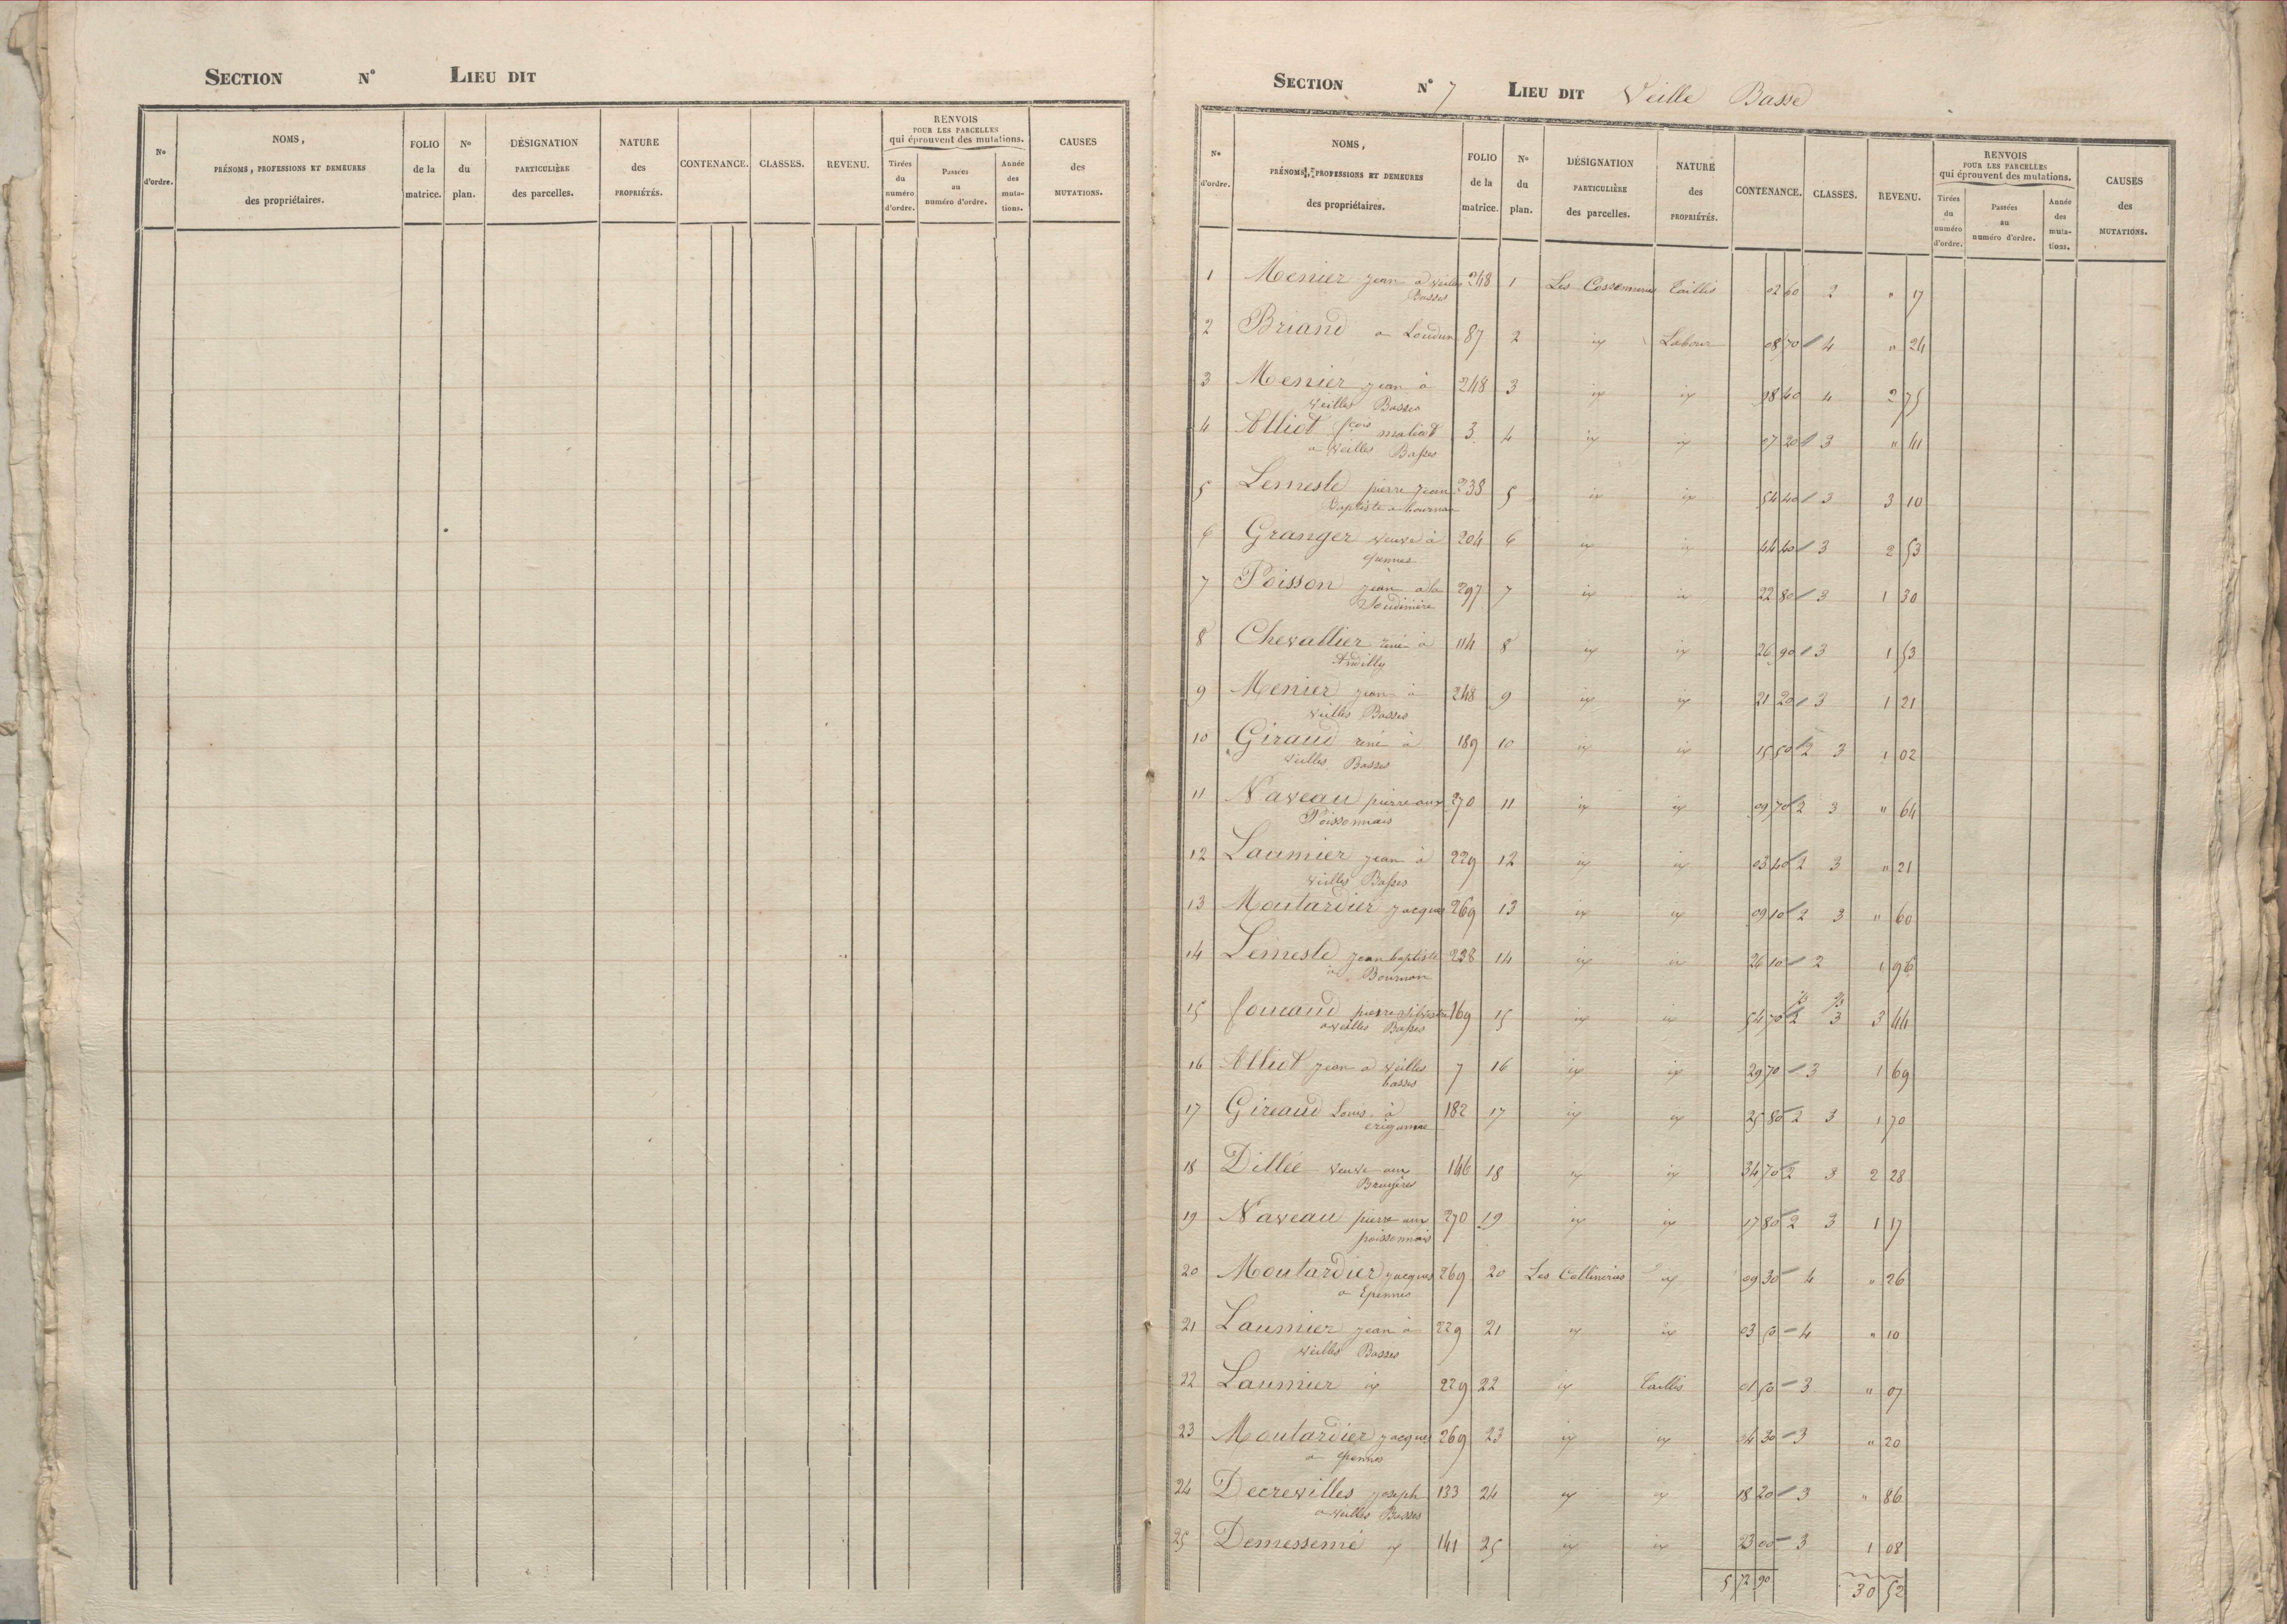 SECTION N° LIEU DIT
N° d'ordre. NOMS, PRÉNOMS, PROFESSIONS ET DEMEURES des propriétaires. FOLIO de la matrice. N° du plan. DÉSIGNATION PARTICULIÈRE des parcelles. NATURE des PROPRIÉTÉS. CONTENANCE. CLASSES. REVENU. RENVOIS POUR LES PARCELLES qui éprouvent des mutations. Tirées du numéro d'ordre. Passées au numéro d'ordre. Année des muta-tions. CAUSES des MUTATIONS.
SECTION N° 7 LIEU DIT Veille Basse
N° d'ordre. NOMS, PRÉNOMS, PROFESSIONS ET DEMEURES des propriétaires. FOLIO de la matrice. N° du plan. DÉSIGNATION PARTICULIÈRE des parcelles. NATURE des PROPRIÉTÉS. CONTENANCE. CLASSES. REVENU. RENVOIS POUR LES PARCELLES qui éprouvent des mutations. Tirées du numéro d'ordre. Passées au numéro d'ordre. Année des muta-tions. CAUSES des MUTATIONS.
1 Menier jean a Veilles 248 1 Les Taillis 02 60 2 " 17
Basses
2 Briand a Loudun 87 2 ix Labour 08 70 4 " 24
3 Menier jean à 248 3 ix ix 98 40 4 2 75
Veilles Basses
4 Alliot fçois 3 4 ix ix 07 20 3 " 41
a Veilles Basses
5 Lemesle pierre jean 238 5 ix ix 54 40 3 3 10
Baptiste a
6 Granger veuve à 204 6 ix ix 44 40 3 2 53
épennes
7 Poisson jean a la 297 7 ix ix 22 80 3 1 30
8 Chevallier rené à 114 8 ix ix 26 90 3 1 53
Andilly
9 Menier jean à 248 9 ix ix 21 20 3 1 21
Veilles Basses
10 Giraud rené à 189 10 ix ix 15 50 2 3 1 02
Veilles Basses
11 Naveau pierre aux 270 11 ix ix 09 70 2 3 " 64
Poissonnais
12 Laumier jean à 229 12 ix ix 03 40 2 3 " 21
Veilles Basses
13 Moutardier jacques 269 13 ix ix 09 10 2 3 " 60
14 Lemesle jean baptiste 238 14 ix ix 26 10 2 1 96
à Bournan
15 foucaud pierre silvestre 169 15 ix ix 54 70 2 3 3 44
a Veilles Basses
16 Alliot jean a Veilles 7 16 ix ix 29 70 3 1 69
basses
17 Gireaud Louis à 182 17 ix ix 25 80 2 3 1 70
18 Dillée veuve aux 146 18 ix ix 34 70 2 3 2 28
Bruyères
19 Naveau pierre aux 270 19 ix ix 17 80 2 3 1 17
poissonnais
20 Moutardier jacques 269 20 Les Collineries ix 09 30 4 " 26
a Epennes
21 Laumier jean à 229 21 ix ix 03 50 4 " 10
Veilles Basses
22 Laumier ix 229 22 ix Taillis 01 50 3 " 07
23 Moutardier jacques 269 23 ix ix 04 30 3 " 20
a épennes
24 Decrevilles joseph 133 24 ix ix 18 20 3 " 86
a Veilles Basses
25 Demessemé ix 141 25 ix ix 23 00 3 1 08
5 72 90 30 52